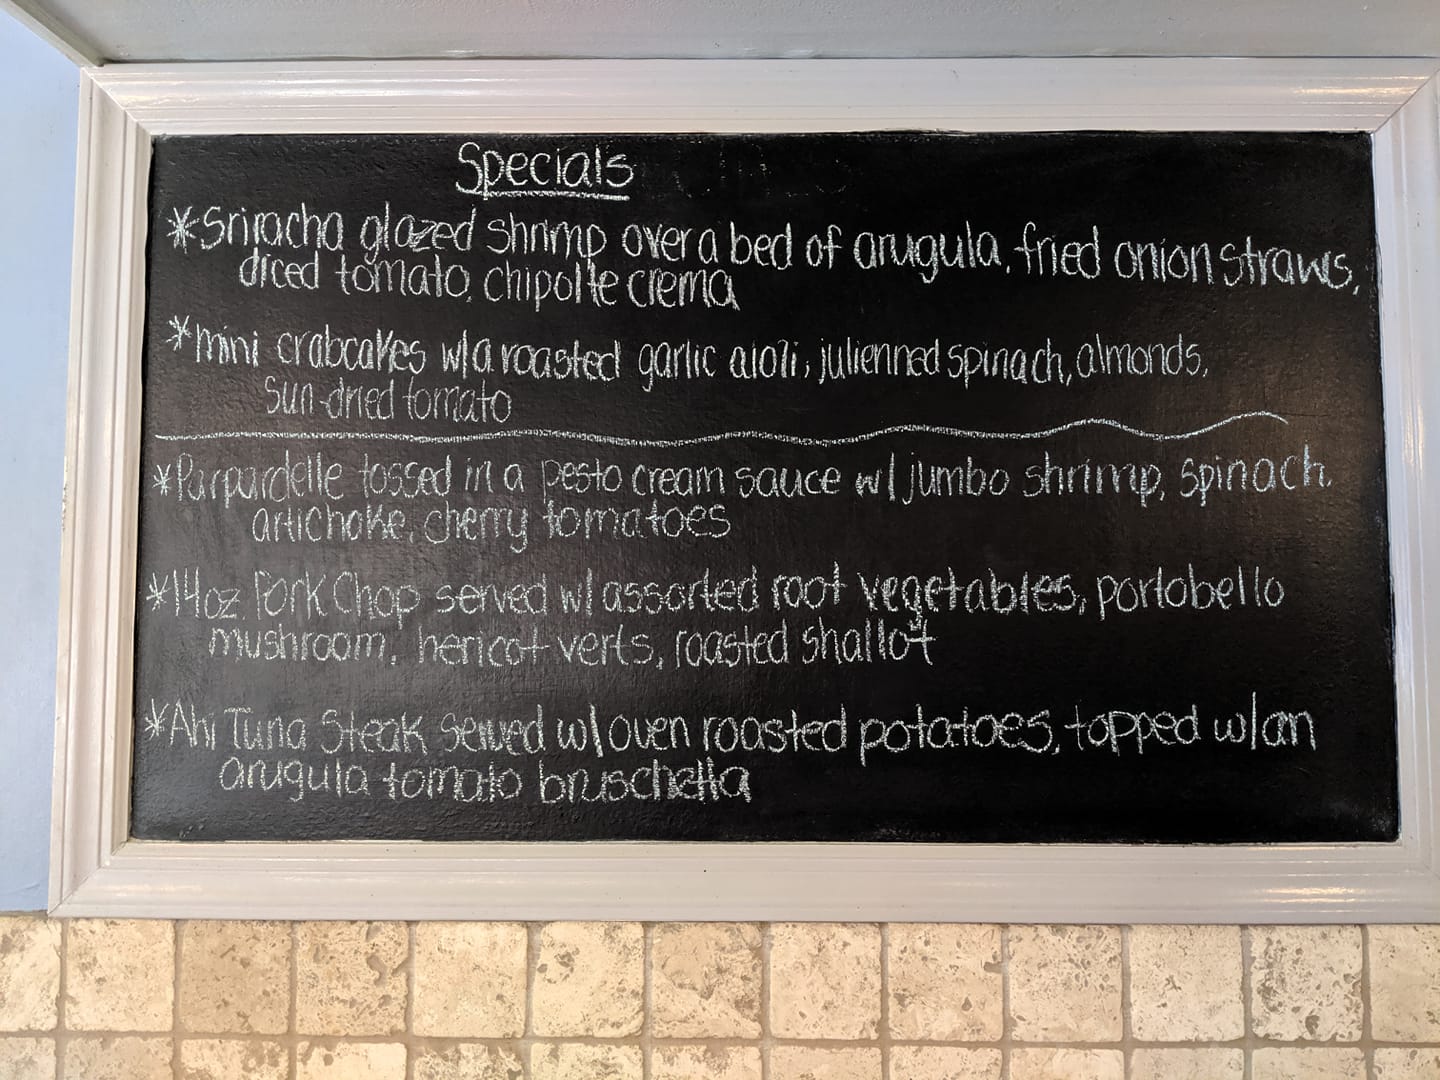 Specials
*Sriracha glazed shrimp over a bed of arugula, fried onion straws,
diced tomato, chipotle crema
*mini crabcakes w/a roasted garlic aioli, julienned spinach, almonds,
sun-dried tomato
*Parpardelle tossed in a pesto cream sauce w/ jumbo shrimp, spinach,
artichoke, cherry tomatoes
*14oz. Pork Chop served w/ assorted root vegetables, portobello
mushroom, hericot verts, roasted shallot
*Ahi Tuna Steak served w/ oven roasted potatoes, topped w/an
arugula tomato bruschetta